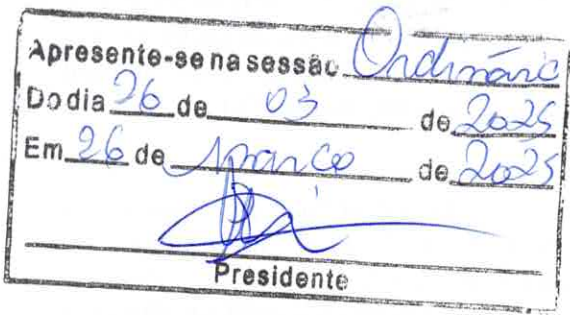 Apresente-se na sessão Ordinária
Do dia 26 de 03 de 2025
Em 26 de Março de 2025
Presidente